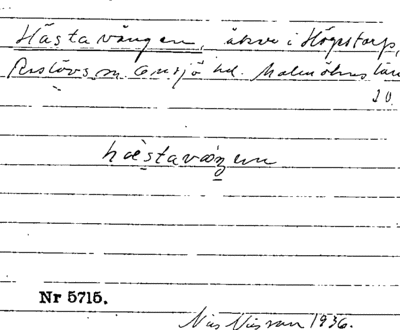 Hästavången, åker i Högstorp,
Rislövs sn. Onsjö hd. Malmöhus län
20
hästavåŋen
Nr 5715.
Nils Nilsson 1936.